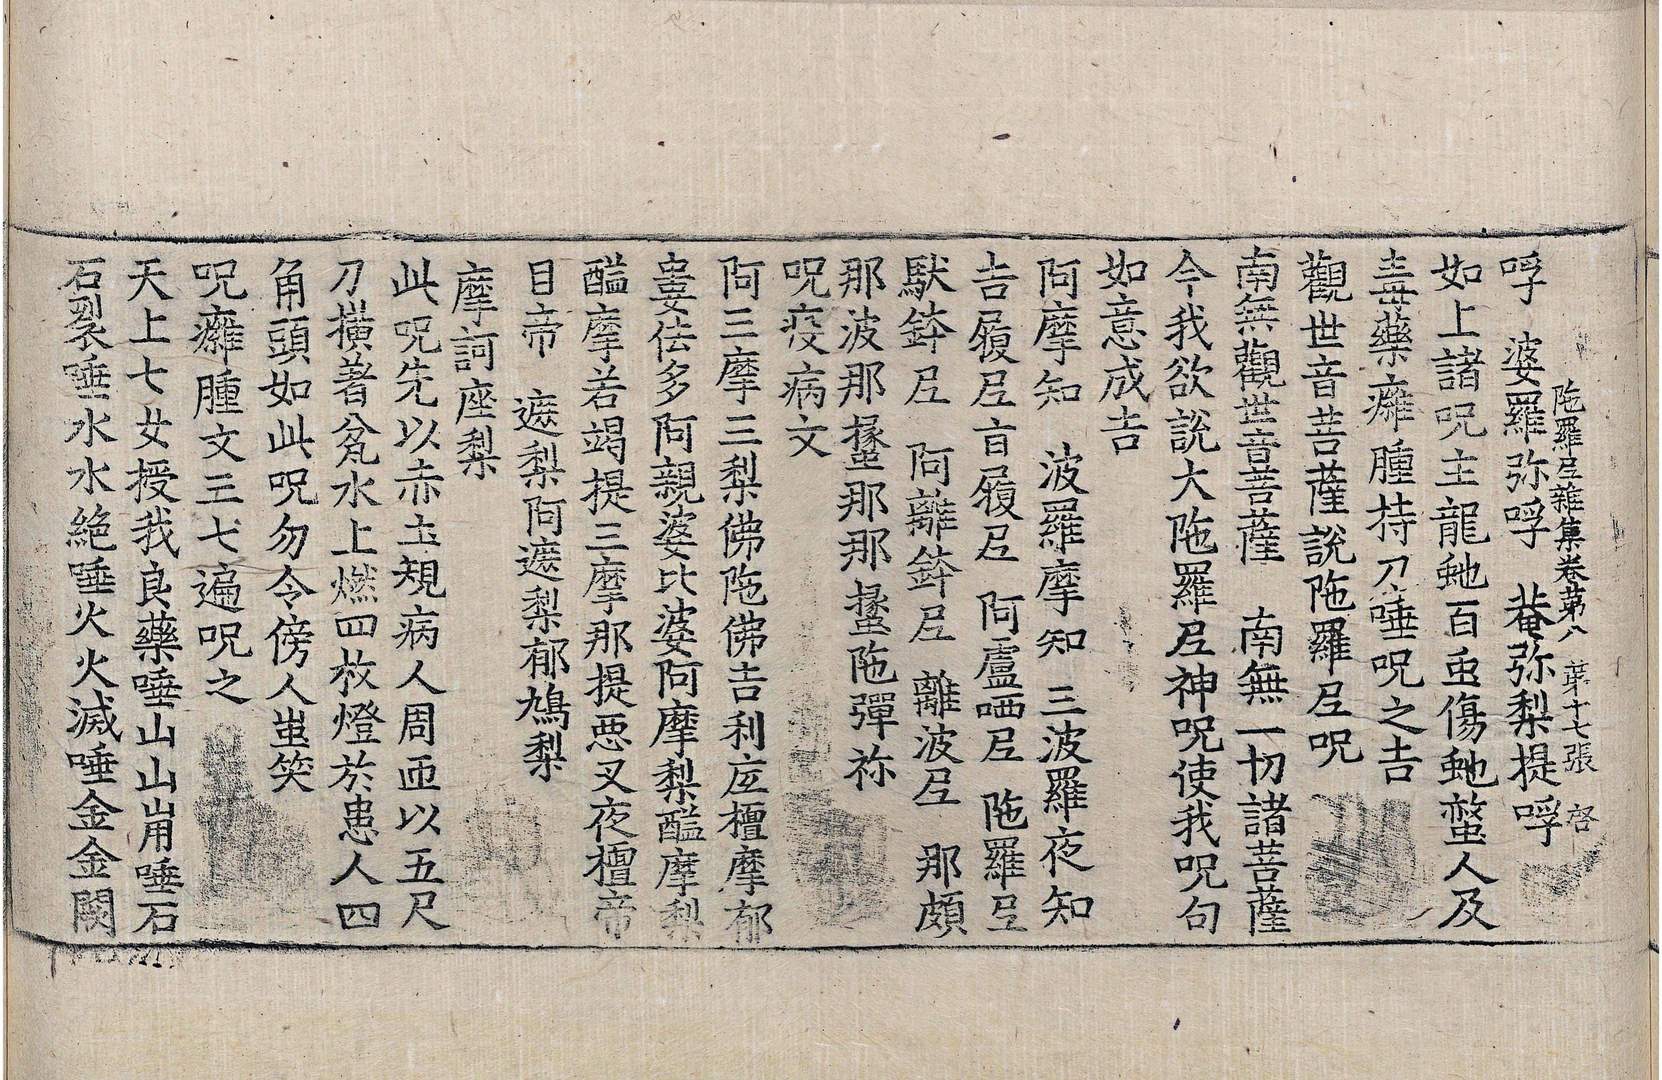 陁羅𡰱雜集卷第八　第十七張　啓
呼　婆羅弥呼　菴弥梨提呼
如上諸呪主龍虵百䖝傷虵螫人及
毒藥癰腫持刀唾呪之吉
觀世音菩薩說陁羅𡰱呪
南無觀世音菩薩　南無一切諸菩薩
今我欲說大陁羅𡰱神呪使我呪句
如意成吉
阿摩知　波羅摩知　三波羅夜知
吉履𡰱　盲履𡰱　阿盧哂𡰱　陁羅𡰱
䭾鉢𡰱　阿離鉢𡰱　離波𡰱　那頗
那波那㨶那那㨶陁彈祢
呪疫病文
阿三摩三梨佛陁佛吉利㡳檀摩郁
婁佉多阿親婆婆比婆阿摩梨醯摩梨
醯摩若竭提三摩那提惡叉夜檀帝
目帝　遮梨阿遮梨郁鳩梨
摩訶座梨
此呪先以赤土規病人周匝以五尺
刀橫著瓮水上燃四枚燈於患人四
角頭如此呪勿令傍人蚩笑
呪癰腫文三七遍呪之
天上七女授我良藥唾山山崩唾石
石裂唾水水絶唾火火滅唾金金闕